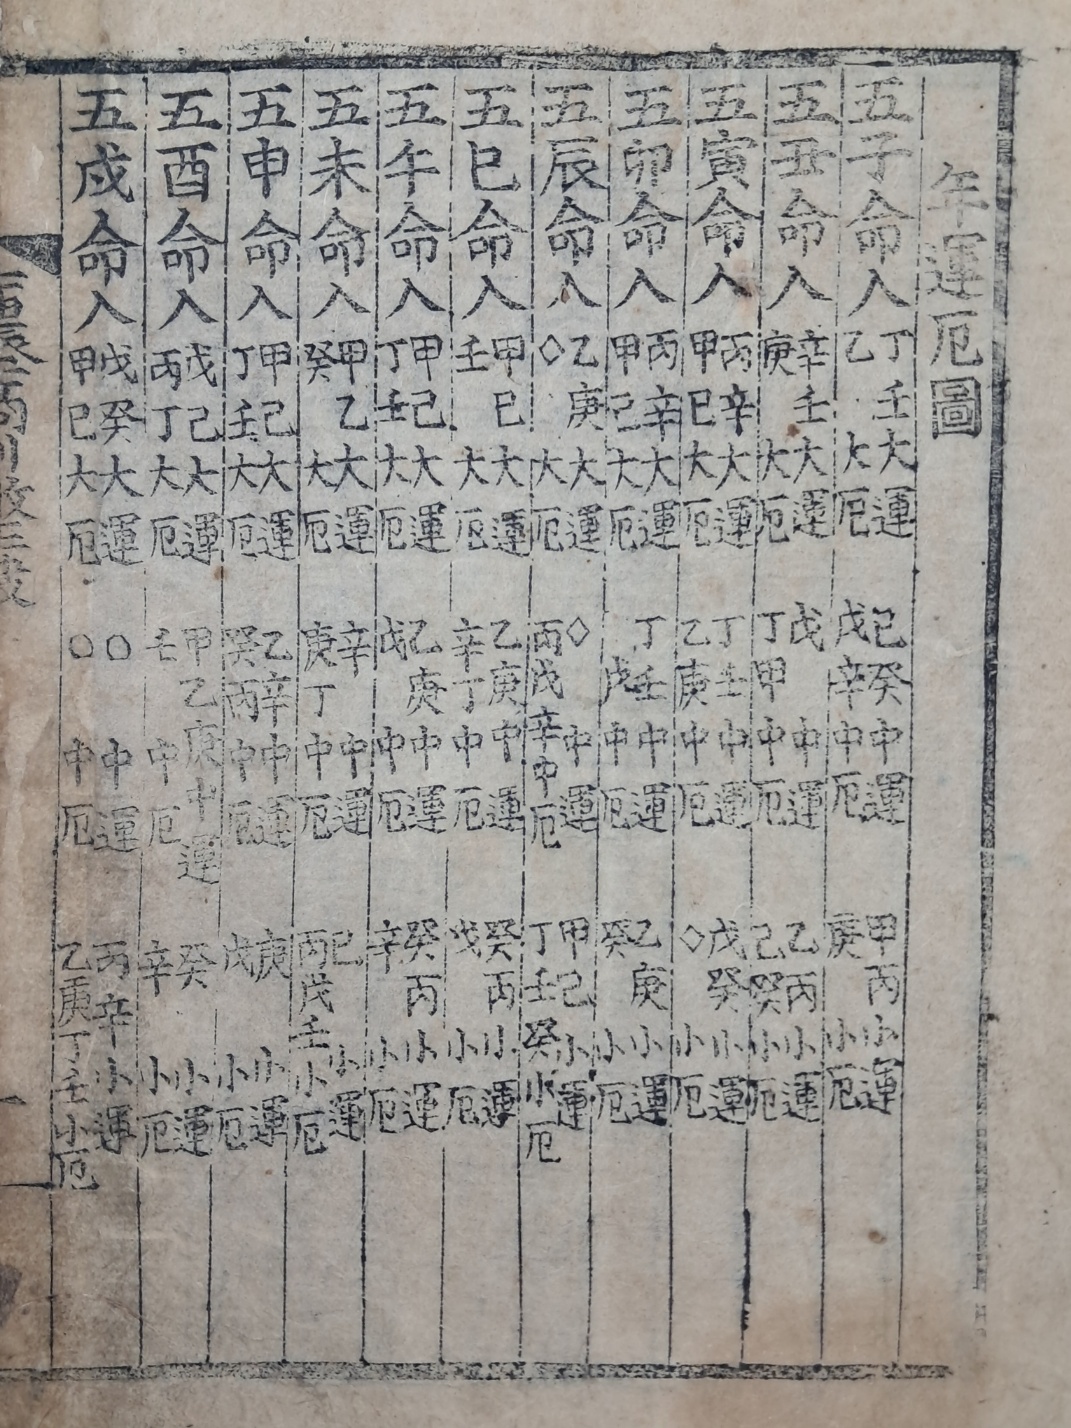 年運厄圖
五子命入 丁壬大運 乙大厄 己癸中運 戊辛中厄 甲丙小運 庚小厄
五丑命入 辛壬大運 庚大厄 戊中運 丁甲中厄 乙丙小運 己癸小厄
五寅命入 丙辛大運 甲巳大厄 丁壬中運 乙庚中厄 戊癸小運 ◇小厄
五卯命入 丙辛大運 甲己大厄 丁壬中運 戊中厄 乙庚小運 癸小厄
五辰命入 乙庚大運 ◇大厄 ◇中運 丙戊辛中厄 甲己小運 丁壬癸小厄
五巳命入 甲巳大運 壬大厄 乙庚中運 辛丁中厄 癸丙小運 戊小厄
五午命入 甲己大運 丁壬大厄 乙庚中運 戊中厄 癸丙小運 辛小厄
五未命入 甲乙大運 癸大厄 辛中運 庚丁中厄 己小運 丙戊壬小厄
五申命入 甲己大運 丁壬大厄 乙辛中運 癸丙中厄 庚小運 戊小厄
五酉命入 戊己大運 丙丁大厄 甲乙庚中運 壬中厄 癸小運 辛小厄
五戌命入 戊癸大運 甲巳大厄 ○中運 ○中厄 丙辛小運 乙庚丁壬小厄